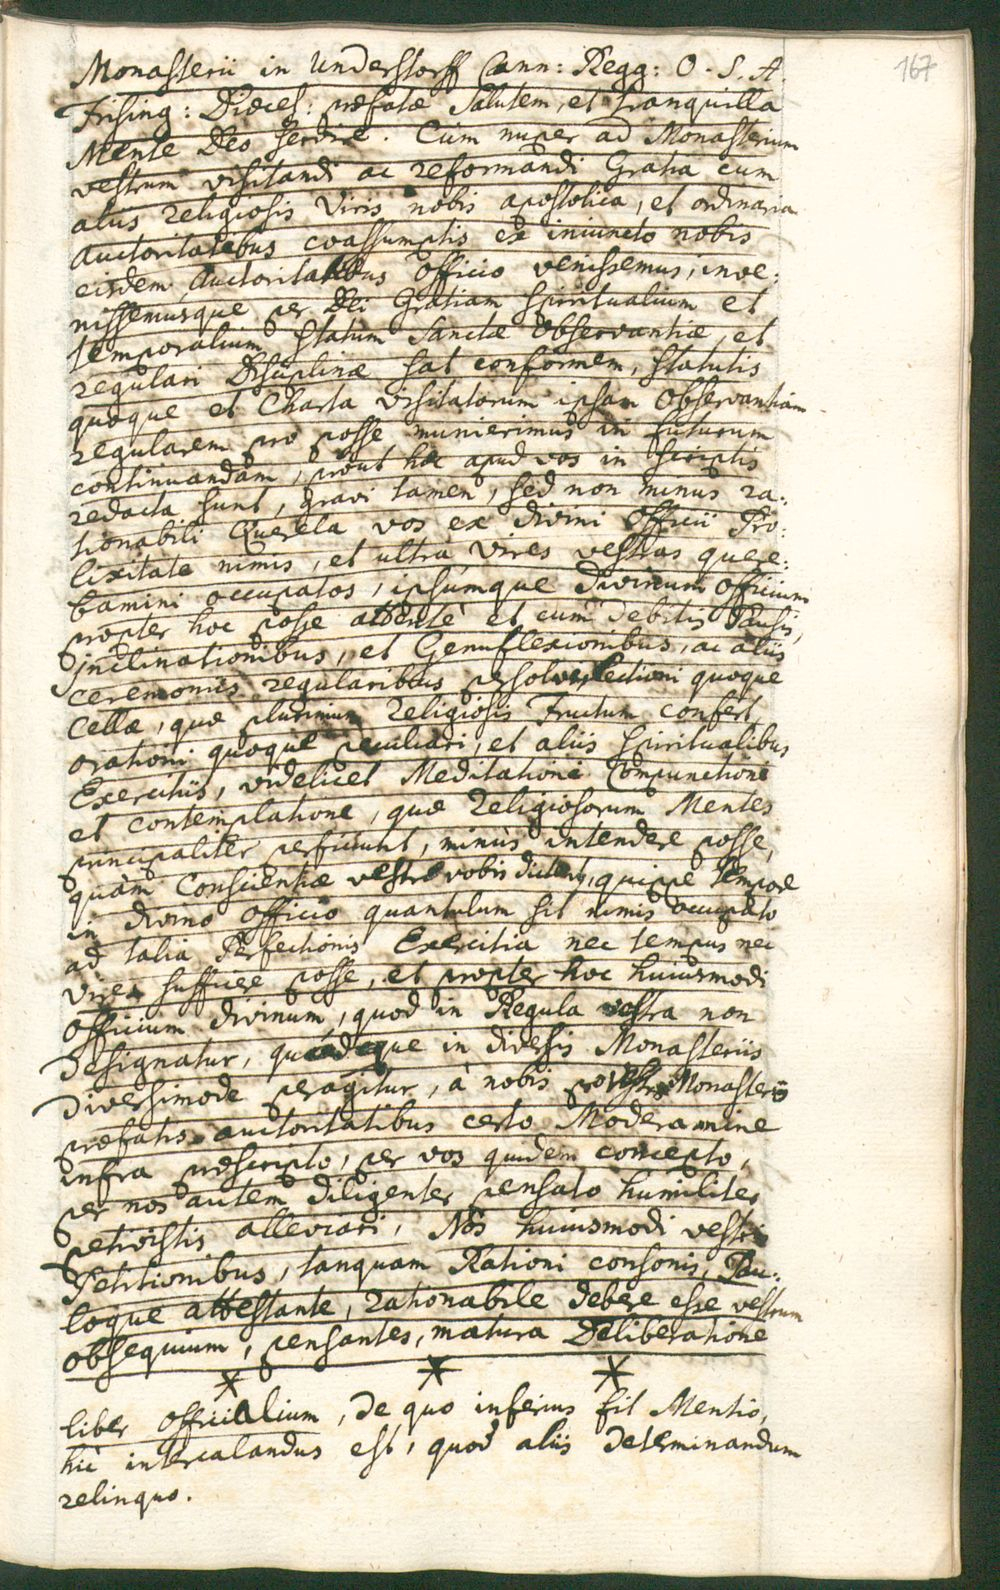 167
Monasterii in Understorff Cann: Regg: O. S. A.
Frising: Dioeces: præfatæ Salutem, et tranquilla
Mente Deo servire. Cùm nuper ad Monasterium
vestrum visitandi ac reformandi Gratia cum
aliis religiosis Viris nobis apostolica, et ordinaria
auctoritatibus coassumptis ex iniuncto nobis
eisdem auctoritatibus officio venissemus, inve:
nissemusque per Dei Gratiam spiritualium et
temporalium statum Sanctæ observantiæ, et
regulari Disciplinæ sat conformem, statutis
quoque et Charta visitatorum ipsam Observantiam
regularem pro posse munierimus in futurum
continuandam, prout hæc apud vos in scriptis
redacta sunt, gravi tamen, sed non minus ra:
tionabili Querela vos ex divini officii Pro:
lixitate nimis, et ultra vires vestras quere:
bamini occupatos, ipsúmque divinum officium
propter hoc posse attentè et cum debitis Pausis,
inclinationibus, et Genuflexionibus, ac aliis
ceremoniis regularibus persolvi, Lectioni quoque
Cellæ, quæ plurimum religiosis Fructum confert,
orationi quoque peculiari, et aliis spiritualibus
Exercitiis, videlicet Meditatione Compunctione
et contemplatione, quæ Religiosorum Mentes
principaliter perficiunt, minùs intendere posse,
quàm Conscientiæ vestræ vobis dictent, quippe tempore
in divino officio quantulum sit nimis occupato
ad talia Perfectionis Exercitia nec tempus nec
vires sufficere posse, et propter hoc huiusmodi
officium divinum, quod in Regula vestra non
designatur, quodque in diversis Monasteriis
diversimode peragitur, à nobis pro vestro Monasterio
præfatis auctoritatibus certo Moderamine
infra præscripto, per vos quidem concepto,
per nos autem diligenter pensato humiliter
petivistis alleviari, Nos huiusmodi vestris
Petitionibus, tanquam Rationi consonis, Pau:
loque attestante, rationabile debere esse vestrum
obsequium, pensantes, matura Deliberatione
* * *
liber officialium, de quo inferius fit Mentio,
hìc intercalandus est, quod aliis determinandum
relinquo.